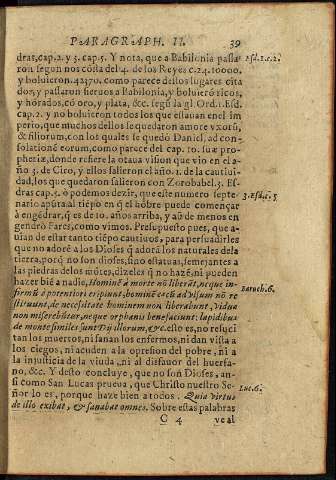 PARAGRAPH. II. 39
dras, cap. 2. y 3. cap. 5. Y nota, que a Babilonia passa Esd. 1. c. 2.
ron segun nos cõsta del 4. de los Reyes c. 24. 10000.
y boluieron. 42370. como parece destos lugares cita
dos, y passaron sieruos a Babilonia, y boluierõ ricos,
y hõrados, cõ oro, y plata, &c. segũ la gl. Ord. 1. Esd.
cap. 2. y no boluieron todos los que estauan en el im
perio, que muchos dellos se quedaron amore vxorũ,
& filiorum, con los quales se quedò Daniel, ad con-
solationẽ eorum, como parece del cap. 10. su a pro-
phetiæ, donde refiere la otaua vision que vio en el a
ño 3. de Ciro, y ellos salieron el año. 1. de la cautiui-
dad, los que quedaron salieron con Zorobabel. 3. Es
dras cap. 5. o podemos dezir, que este numero septe- 3. Esd. c. 5
nario apũta al tiẽpo en q̃ el hõbre puede començar
à engẽdrar, q̃ es de 10. años arriba, y aũ de menos en
gendrò Fares, como vimos. Presupuesto pues, que a-
uian de estar tanto tiẽpo cautiuos, para persuadirles
que no adorẽ a los Dioses q̃ adorã los naturales de la
tierra, porq̃ no son dioses, sino estatuas, semejantes a
las piedras de los mõtes, dizeles q̃ no hazẽ, ni pueden
hazer biẽ a nadie, Hominẽ a morte nõ liberãt, neque in-
firmũ a potentiori eripiunt, hominẽ cæcũ ad visum nõ re Baruch. 6.
stituunt, de necessitate hominem non liberabunt, vidua
non miserebũtur, neque orphanis benefaciunt: lapidibus
de monte similes sunt Dij illorum, &c. esto es, no resuci
tan los muertos, ni sanan los enfermos, ni dan vista a
los ciegos, ni acuden a la opresion del pobre, ni a
la injusticia de la viuda, ni al disfauor del huerfa-
no, &c. Y desto concluye, que no son Dioses, an-
si como San Lucas prueua, que Christo nuestro Se-
ñor lo es, porque haze bien a todos. Quia virtus Luc. 6.
de illo exibat, & sanabat omnes. Sobre estas palabras
C 4 ve al